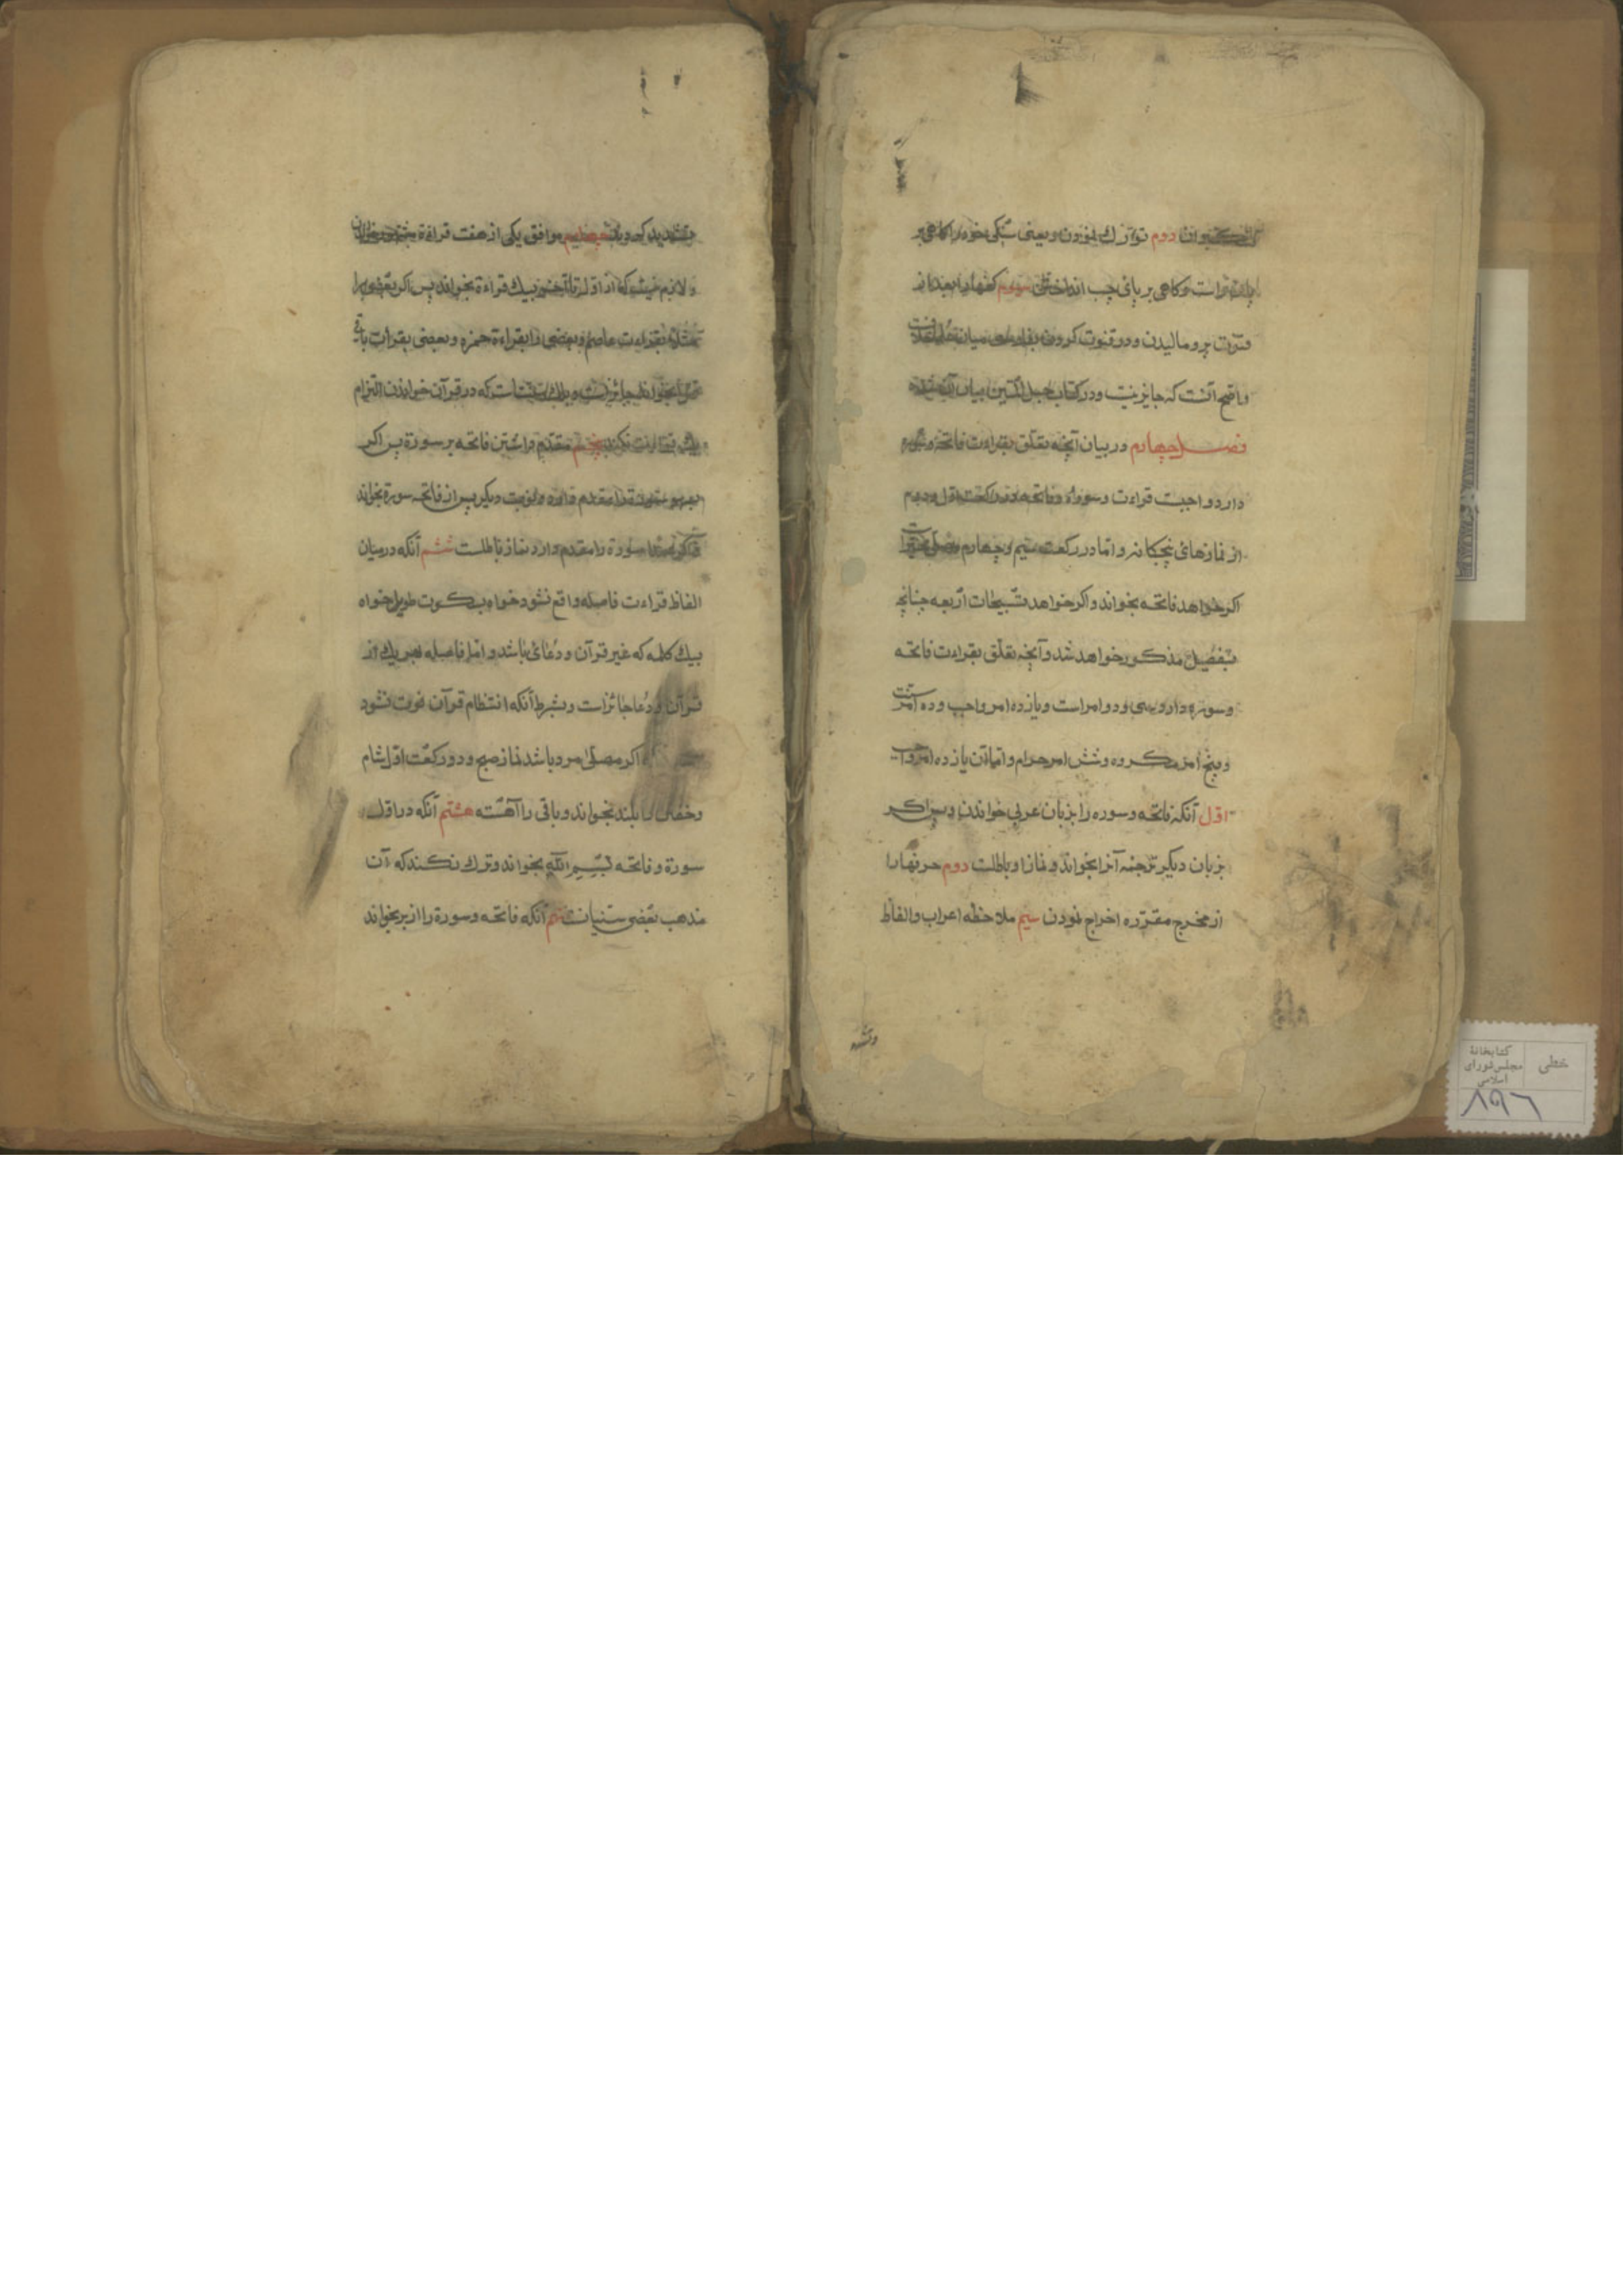 دوم تورّك نمودن ويعنى سنكينى خود را كاهى بر
راست وكاهى بر پاى چپ انداختن سيوم كفها را بعد از
قنوت برو ماليدن ودر قنوت كردن ميان علما
واصح آنست كه جايز نيست ودر كتاب حبل المتين بيان آن شده
فصل چهارم در بيان آنچه تعلّق بقراءت فاتحه وسوره
دارد واجبست قراءت وسوره وفاتحه در ركعت اول ودويم
از نمازهاى پنجكانه وامّا در ركعت سيم وچهارم مصلى
اكر خواهد فاتحه بخواند واكر خواهد تسبيحات اربعه چنانچه
بتفصيل مذكور خواهد شد وآنچه تعلّق بقراءت فاتحه
وسوره دارد سى ودو امر است ويازده امر واجب وده امر سنّت
وپنج امر مكروه وشش امر حرام وامّا آن يازده امر واجب
اوّل آنكه فاتحه وسوره را بزبان عربى خواندن وپس اكر
بزبان ديكر ترجمه آنرا بخواند ونماز او باطلست دوم حرفها را
از مخرج مقرّره اخراج نمودن سيم ملاحظه اعراب والفاظ
وتشد
وتشديد كردن چهارم موافق يكى از هفت قراءة خواندن
ولازم نيست كه از اوّل تا آخر بيك قراءة بخواند پس اكر بعضى را
مثلا بقراءت عاصم وبعضى را بقراءة حمزه وبعضى بقرات باقى
بخواند جائز است كه در قرآن خواندن التزام
يك قراءت نكند پنجم مقدّم داشتن فاتحه بر سورة پس اكر
بسهو سورة را مقدم دارد نوبت ديكر پس از فاتحه سورة بخواند
واكر عمدا سورة را مقدم دارد نماز باطلست ششم آنكه در ميان
الفاظ قراءت فاصله واقع نشود خواه بسكوت طويل خواه
بيك كلمه كه غير قرآن ودعائى باشد وامّا فاصله بهر يك از
قرآن ودعا جائز است وبشرط آنكه انتظام قرآن فوت نشود
اكر مصلّى مرد باشد نماز صبح ودو ركعت اوّل شام
وخفتن را بلند بخواند وباقى را آهسته هشتم آنكه در اوّل
سورة وفاتحه بسم الله بخواند وترك نكند كه آن
مذهب بعضى سنيانست نهم آنكه فاتحه وسورة را از بر بخواند
كتابخانهٔ
مجلس شوراى
اسلامى
خطى
۸۹۶